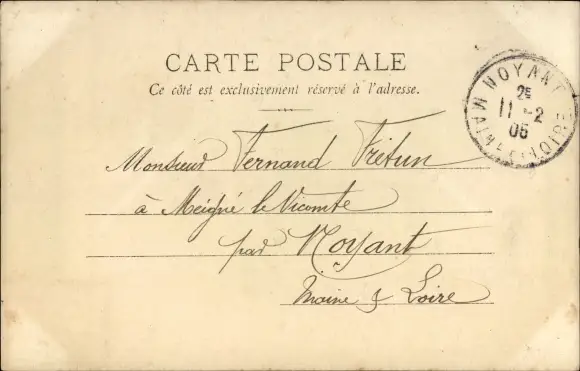 CARTE POSTALE
Ce côté est exclusivement réservé à l'adresse.
NOYANT
2E
11 -2
05
MAINE-ET-LOIRE
Monsieur Fernand Frétun
à Meigné le Vicomte
par Noyant
Maine & Loire